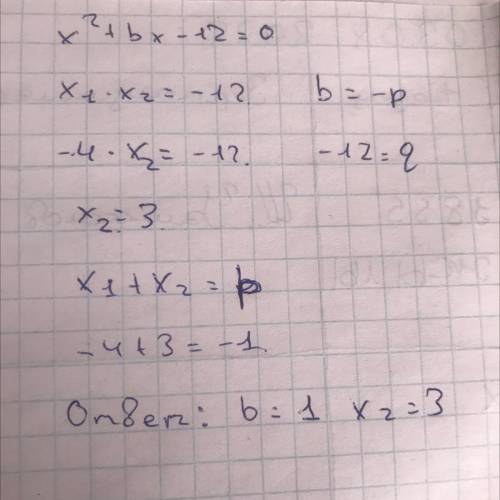 x²+bx-12=0
x1·x2=-12 b=-p
-4·x2=-12. -12=q
x2=3.
x1+x2=p
-4+3=-1.
Ответ: b=1 x2=3